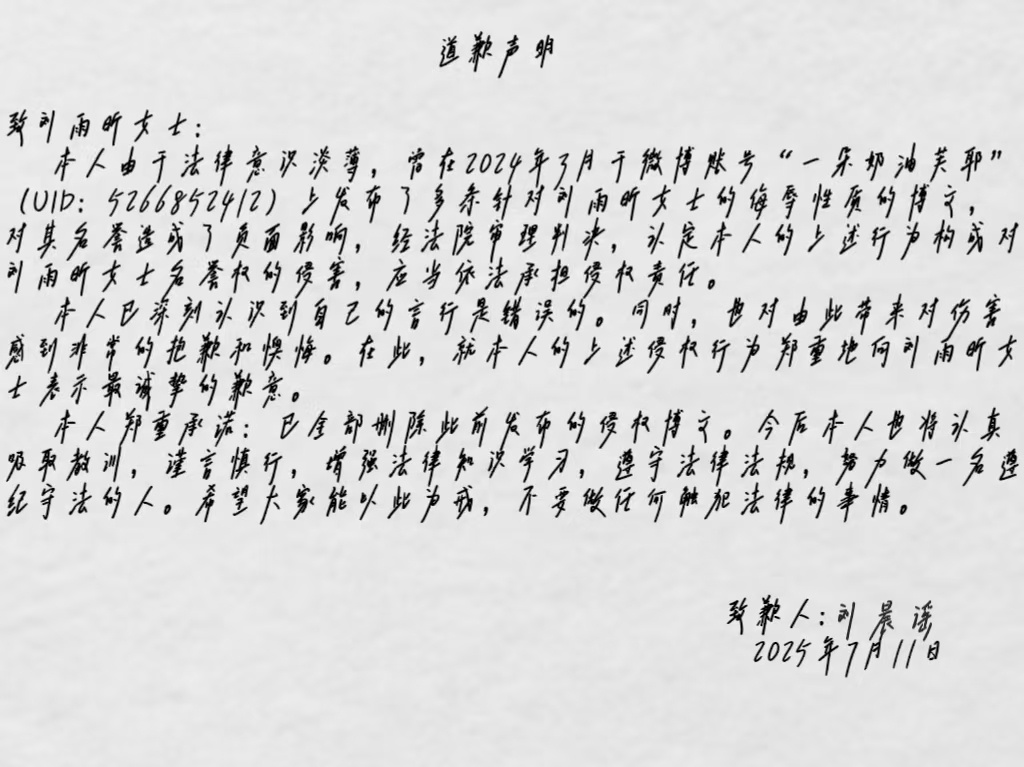 道歉声明
致刘雨昕女士：
本人由于法律意识淡薄，曾在2024年3月于微博账号“一朵奶油芙耶”
（UID：5266852412）上发布了多条针对刘雨昕女士的侮辱性质的博文，
对其名誉造成了负面影响，经法院审理判决，认定本人的上述行为构成对
刘雨昕女士名誉权的侵害，应当依法承担侵权责任。
本人已深刻认识到自己的言行是错误的。同时，也对由此带来对伤害
感到非常的抱歉和懊悔。在此，就本人的上述侵权行为郑重地向刘雨昕女
士表示最诚挚的歉意。
本人郑重承诺：已全部删除此前发布的侵权博文。今后本人也将认真
吸取教训，谨言慎行，增强法律知识学习，遵守法律法规，努力做一名遵
纪守法的人。希望大家能以此为戒，不要做任何触犯法律的事情。
致歉人：刘晨谣
2025年7月11日